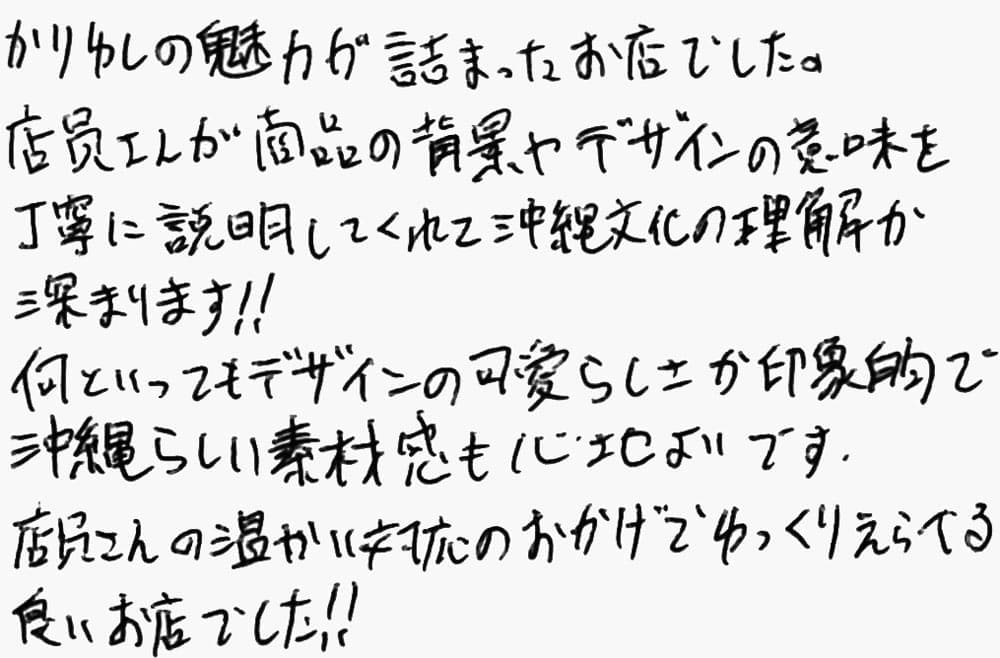 かりゆしの魅力が詰まったお店でした。
店員さんが商品の背景やデザインの意味を
丁寧に説明してくれて沖縄文化の理解が
深まります!!
何といってもデザインの可愛らしさが印象的で
沖縄らしい素材感も心地よいです.
店員さんの温かい対応のおかげでゆっくりえらべる
良いお店でした!!